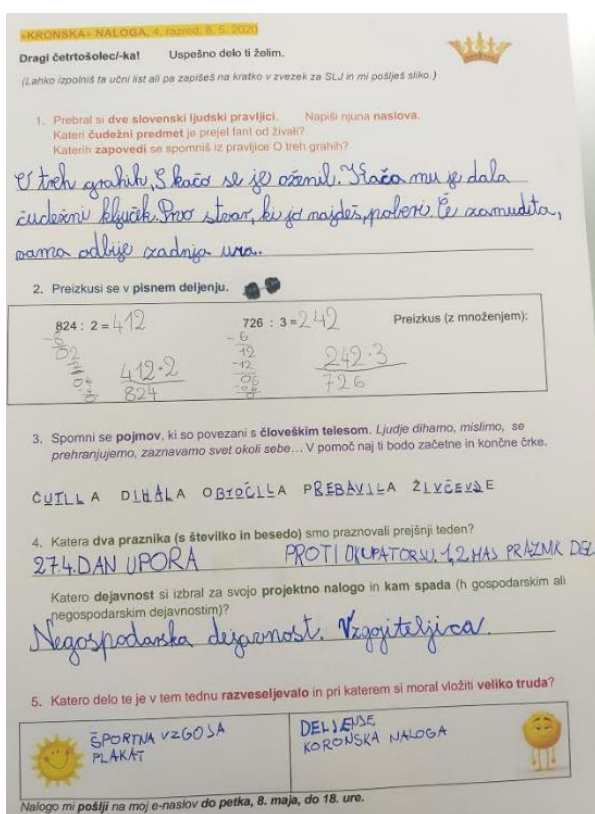 »KRONSKA« NALOGA, 4. razred, 8. 5. 2020
Dragi četrtošolec/-ka! Uspešno delo ti želim.
(Lahko izpolniš ta učni list ali pa zapišeš na kratko v zvezek za SLJ in mi pošlješ sliko.)
1. Prebral si dve slovenski ljudski pravljici. Napiši njuna naslova.
Kateri čudežni predmet je prejel fant od živali?
Katerih zapovedi se spomniš iz pravljice O treh grahih?
O treh grahih, S kačo se je oženil. Kača mu je dala
čudežni ključek. Prvo stvar, ki jo najdeš, poberi. Če zamudita,
vama odbije zadnja ura.
2. Preizkusi se v pisnem deljenju.
824 : 2 = 412 726 : 3 = 242 Preizkus (z množenjem):
02 12
-12
04 412·2 06 242·3
824 726
3. Spomni se pojmov, ki so povezani s človeškim telesom. Ljudje dihamo, mislimo, se
prehranjujemo, zaznavamo svet okoli sebe... V pomoč naj ti bodo začetne in končne črke.
ČUTILA DIHALA OBTOČILA PREBAVILA ŽIVČEVJE
4. Katera dva praznika (s številko in besedo) smo praznovali prejšnji teden?
27.4. DAN UPORA PROTI OKUPATORJU, 1,2. MAJ PRAZNIK DEL
Katero dejavnost si izbral za svojo projektno nalogo in kam spada (h gospodarskim ali
negospodarskim dejavnostim)?
Negospodarska dejavnost. Vzgojiteljica.
5. Katero delo te je v tem tednu razveseljevalo in pri katerem si moral vložiti veliko truda?
ŠPORTNA VZGOJA DELJENJE
PLAKAT KORONSKA NALOGA
Nalogo mi pošlji na moj e-naslov do petka, 8. maja, do 18. ure.